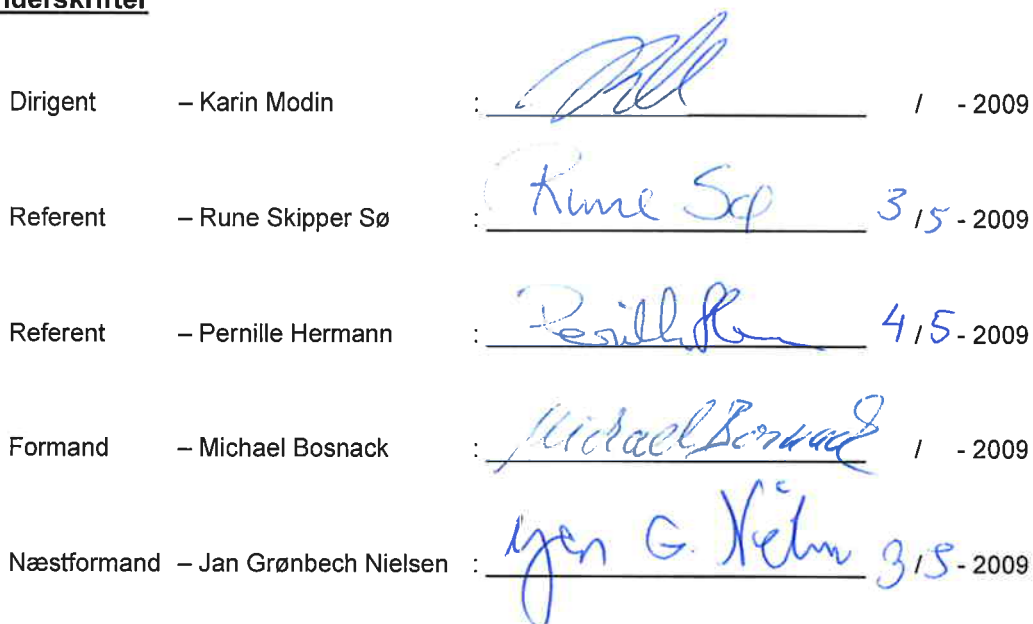 Underskrifter
Dirigent – Karin Modin : / - 2009
Referent – Rune Skipper Sø : Rune Sø 3/5 - 2009
Referent – Pernille Hermann : 4/5 - 2009
Formand – Michael Bosnack : Michael Bosnack / - 2009
Næstformand – Jan Grønbech Nielsen : Jan G. Nielsen 3/5 - 2009